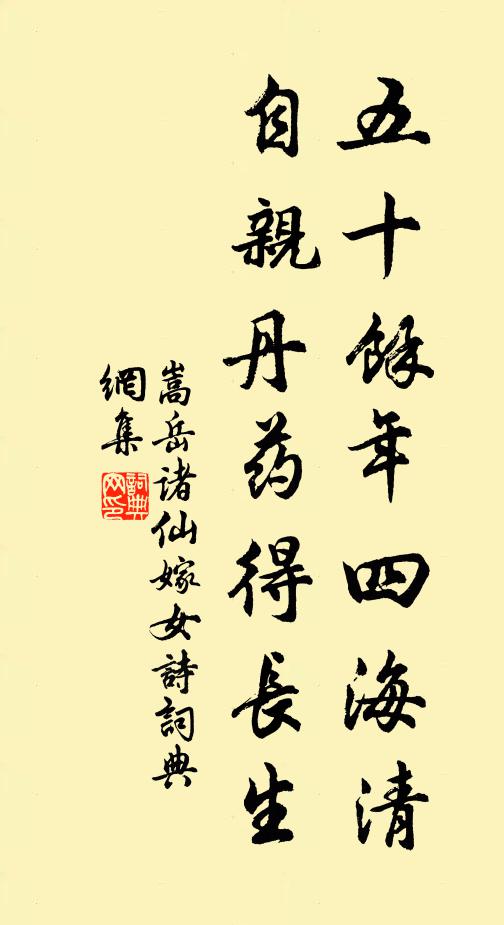 五十餘年四海清
自親丹药得長生
嵩岳諸仙嫁女詩詞典
網集
詞典
网印